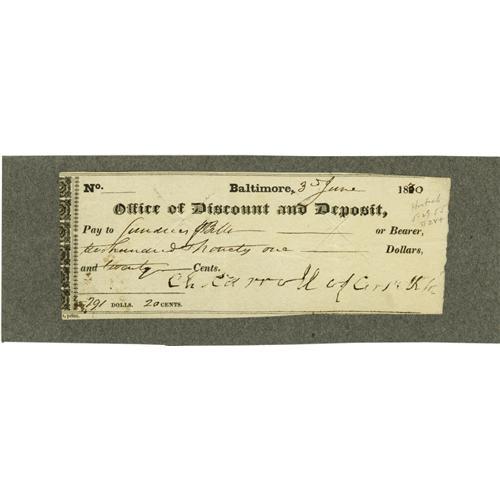 No. Baltimore, 3d June 1830
Office of Discount and Deposit,
Pay to Sundries or Bearer,
two hundred & ninety one Dollars,
and twenty Cents.
Ch. Carroll of Carr
291 DOLLS. 20 CENTS.